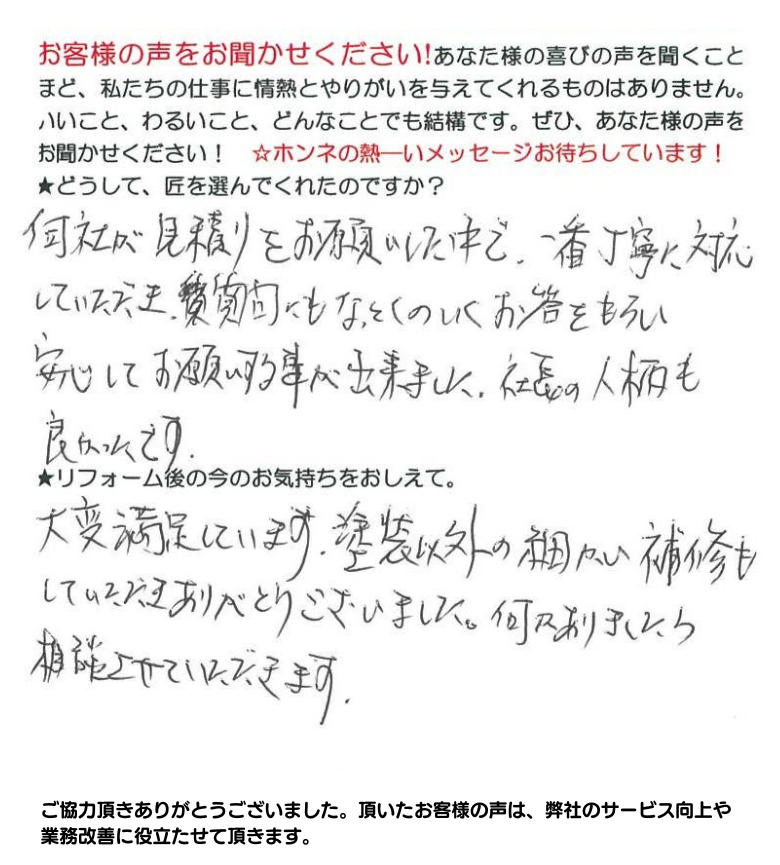 お客様の声をお聞かせください!あなた様の喜びの声を聞くこと
ほど、私たちの仕事に情熱とやりがいを与えてくれるものはありません。
いいこと、わるいこと、どんなことでも結構です。ぜひ、あなた様の声を
お聞かせください！ ☆ホンネの熱ーいメッセージお待ちしています！
★どうして、匠を選んでくれたのですか？
何社か見積りをお願いした中で、一番丁寧に対応
していただき、質問にもなっとくのいくお答をもらい
安心してお願いする事が出来ました。社長の人柄も
良かったです。
★リフォーム後の今のお気持ちをおしえて。
大変満足しています。塗装以外の細かい補修も
していただきありがとうございました。何かありましたら
相談させていただきます。
ご協力頂きありがとうございました。頂いたお客様の声は、弊社のサービス向上や
業務改善に役立たせて頂きます。